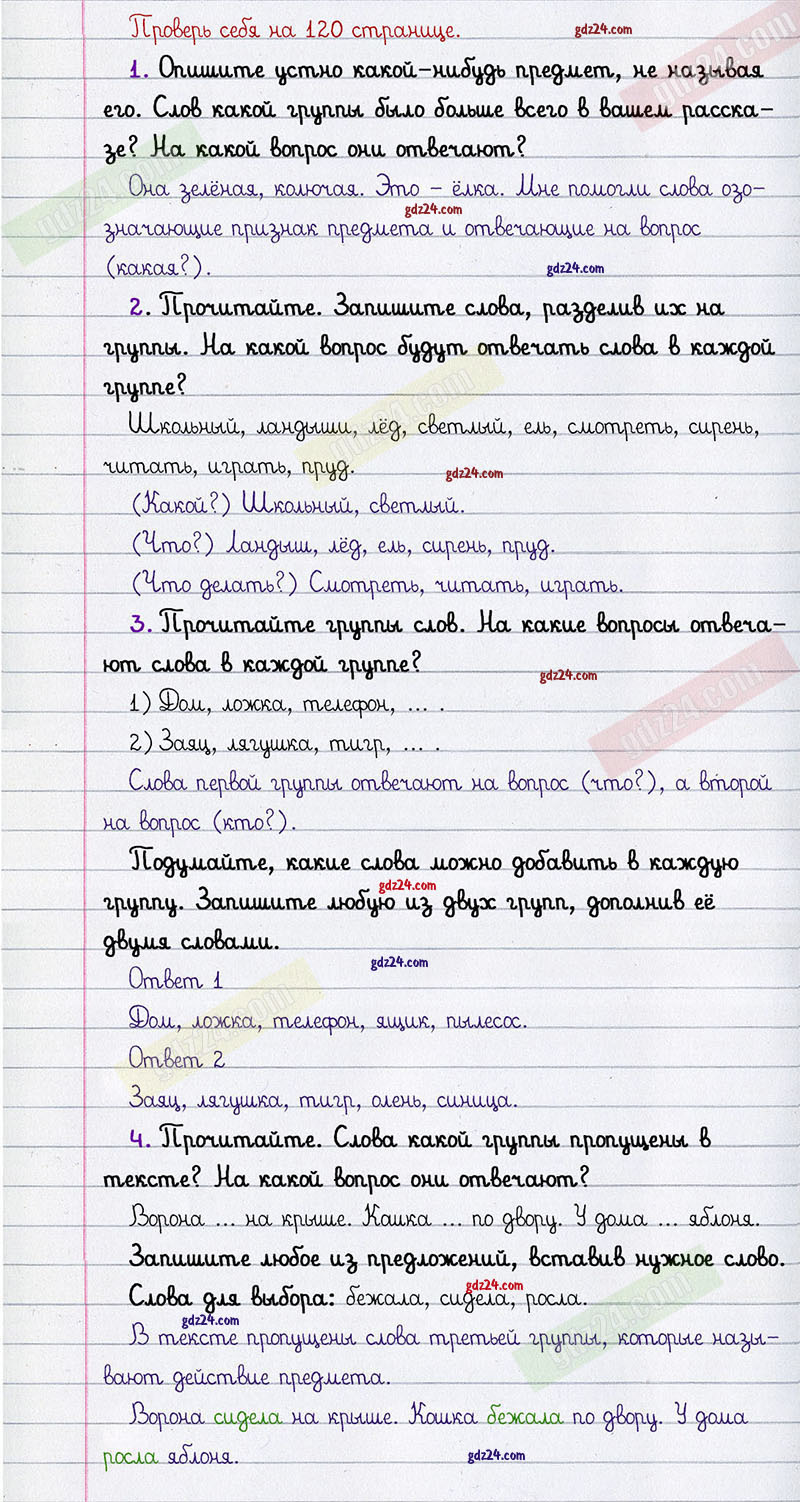 Проверь себя на 120 странице.
gdz24.com
1. Опишите устно какой-нибудь предмет, не называя
его. Слов какой группы было больше всего в вашем расска-
зе? На какой вопрос они отвечают?
Она зелёная, колючая. Это – ёлка. Мне помогли слова озо-
gdz24.com
значающие признак предмета и отвечающие на вопрос
(какая?).
gdz24.com
2. Прочитайте. Запишите слова, разделив их на
группы. На какой вопрос будут отвечать слова в каждой
группе?
Школьный, ландыши, лёд, светлый, ель, смотреть, сирень,
читать, играть, пруд.
gdz24.com
(Какой?) Школьный, светлый.
(Что?) Ландыш, лёд, ель, сирень, пруд.
(Что делать?) Смотреть, читать, играть.
3. Прочитайте группы слов. На какие вопросы отвеча-
ют слова в каждой группе?
gdz24.com
1) Дом, ложка, телефон, ... .
2) Заяц, лягушка, тигр, ... .
Слова первой группы отвечают на вопрос (что?), а второй
на вопрос (кто?).
Подумайте, какие слова можно добавить в каждую
gdz24.com
группу. Запишите любую из двух групп, дополнив её
двумя словами.
gdz24.com
Ответ 1
Дом, ложка, телефон, ящик, пылесос.
Ответ 2
Заяц, лягушка, тигр, олень, синица.
4. Прочитайте. Слова какой группы пропущены в
тексте? На какой вопрос они отвечают?
Ворона ... на крыше. Кашка ... по двору. У дома ... яблоня.
Запишите любое из предложений, вставив нужное слово.
gdz24.com
Слова для выбора: бежала, сидела, росла.
gdz24.com
В тексте пропущены слова третьей группы, которые назы-
вают действие предмета.
Ворона сидела на крыше. Кашка бежала по двору. У дома
росла яблоня.
gdz24.com
gdz24.com
gdz24.com
gdz24.com
gdz24.com
gdz24.com
gdz24.com